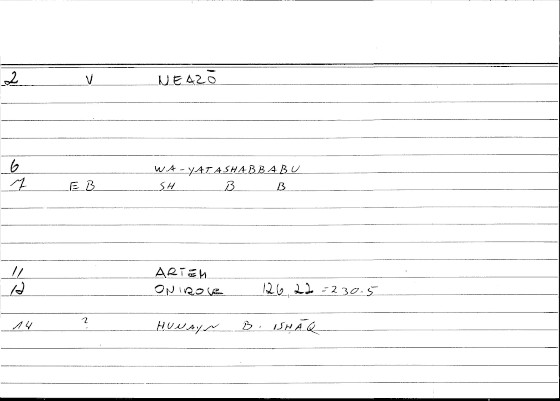 2 V NEAZŌ
6 WA-YATASHABBABU
7 EB SH B B
11 ARTEM
12 ONIROCR 126,22 = 230.5
14 ? HUNAYN B. ISHĀQ